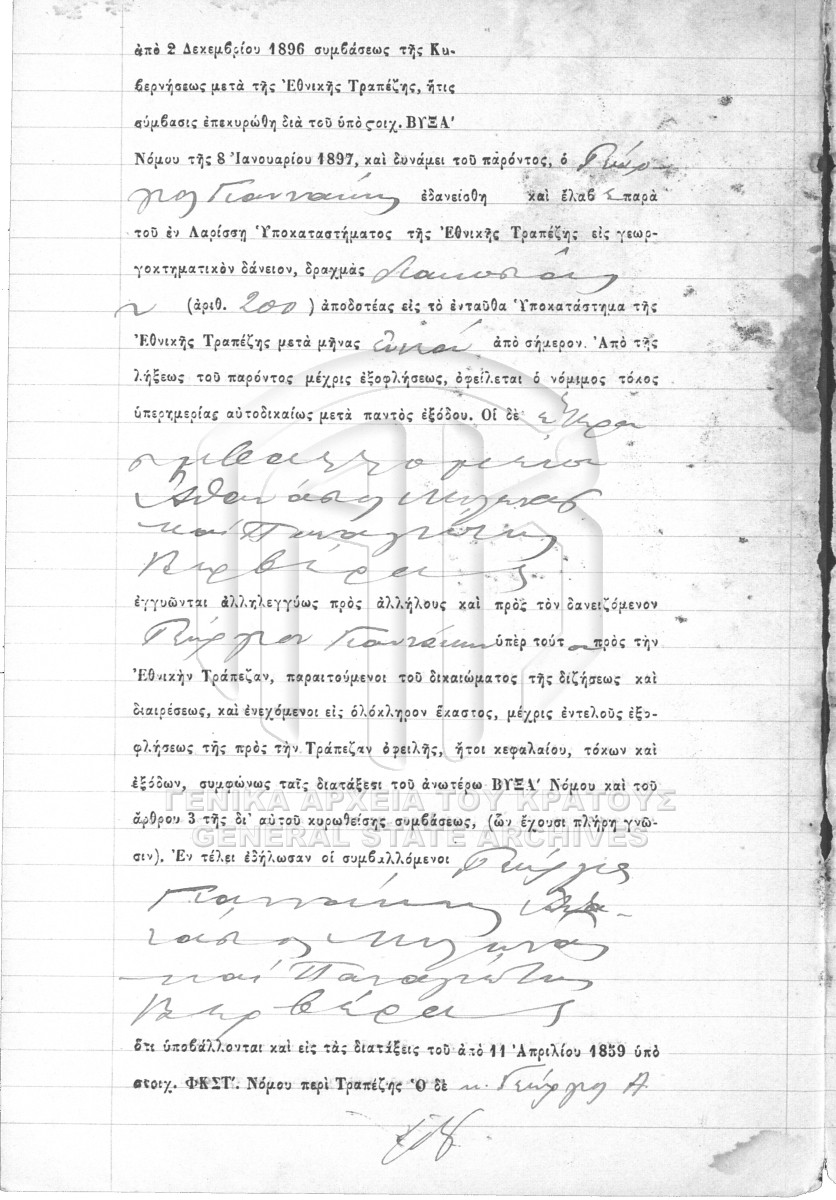 ἀπὸ 2 Δεκεμβρίου 1896 συμβάσεως τῆς Κυ-
βερνήσεως μετὰ τῆς Ἐθνικῆς Τραπέζης, ἥτις
σύμβασις ἐπεκυρώθη διὰ τοῦ ὑπὸ ϛοιχ. ΒΥΞΑʹ
Νόμου τῆς 8 Ἰανουαρίου 1897, καὶ δυνάμει τοῦ παρόντος, ὁ Γεώρ-
γιος Γιαννάκης ἐδανείσθη καὶ ἔλαβε παρὰ
τοῦ ἐν Λαρίσσῃ Ὑποκαταστήματος τῆς Ἐθνικῆς Τραπέζης εἰς γεωρ-
γοκτηματικὸν δάνειον, δραχμὰς διακοσίας
(ἀριθ. 200) ἀποδοτέας εἰς τὸ ἐνταῦθα Ὑποκατάστημα τῆς
Ἐθνικῆς Τραπέζης μετὰ μῆνας ἐννέα ἀπὸ σήμερον. Ἀπὸ τῆς
λήξεως τοῦ παρόντος μέχρις ἐξοφλήσεως, ὀφείλεται ὁ νόμιμος τόκος
ὑπερημερίας αὐτοδικαίως μετὰ παντὸς ἐξόδου. Οἱ δὲ
συμβαλλόμενοι
Ἀθανάσιος
καὶ Παναγιώτης
Βερβέρας
ἐγγυῶνται ἀλληλεγγύως πρὸς ἀλλήλους καὶ πρὸς τὸν δανειζόμενον
Γεώργιον Γιαννάκην ὑπὲρ τούτου πρὸς τὴν
Ἐθνικὴν Τράπεζαν, παραιτούμενοι τοῦ δικαιώματος τῆς διζήσεως καὶ
διαιρέσεως, καὶ ἐνεχόμενοι εἰς ὁλόκληρον ἕκαστος, μέχρις ἐντελοῦς ἐξο-
φλήσεως τῆς πρὸς τὴν Τράπεζαν ὀφειλῆς, ἤτοι κεφαλαίου, τόκων καὶ
ἐξόδων, συμφώνως ταῖς διατάξεσι τοῦ ἀνωτέρω ΒΥΞΑʹ Νόμου καὶ τοῦ
ΓΕΝΙΚΑ ΑΡΧΕΙΑ ΤΟΥ ΚΡΑΤΟΥΣ
ἄρθρου 3 τῆς δι' αὐτοῦ κυρωθείσης συμβάσεως, (ὧν ἔχουσι πλήρη γνῶ-
GENERAL STATE ARCHIVES
σιν). Ἐν τέλει ἐδήλωσαν οἱ συμβαλλόμενοι Γεώργιος
Γιαννάκης Ἀθα-
νάσιος
καὶ Παναγιώτης
Βερβέρας
ὅτι ὑποβάλλονται καὶ εἰς τὰς διατάξεις τοῦ ἀπὸ 11 Ἀπριλίου 1859 ὑπὸ
στοιχ. ΦΚΣΤʹ. Νόμου περὶ Τραπέζης Ὁ δὲ κ. Γεώργιος Α.